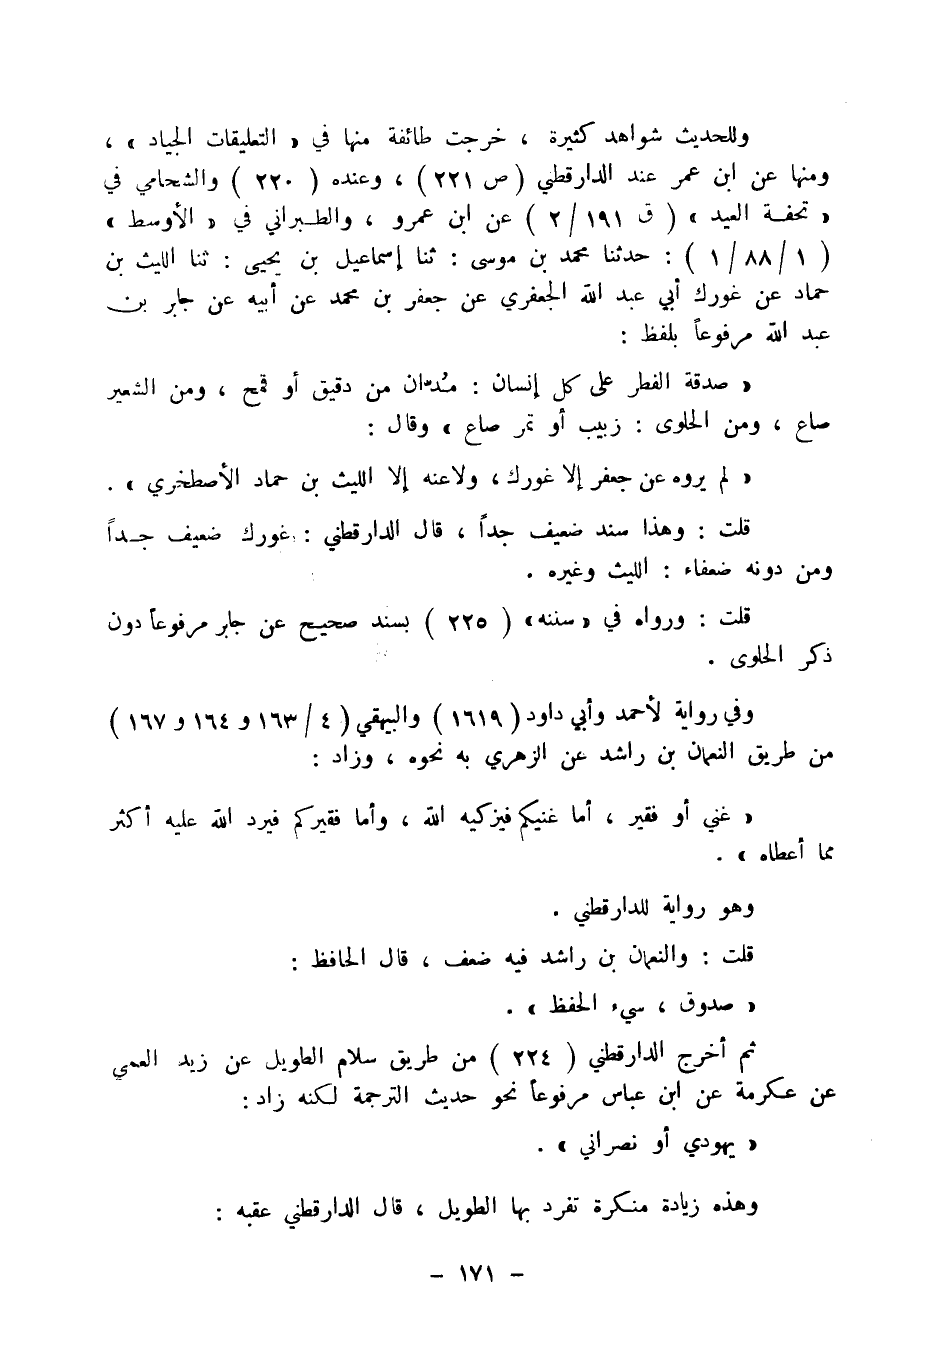 وللحديث شواهد كثيرة ، خرجت طائفة منها في « التعليقات الجياد » ،
ومنها عن ابن عمر عند الدارقطني ( ص ٢٢١ ) ، وعنده ( ٢٢٠ ) والشحامي في
« تحفـة العيد » ( ق ١٩١/ ٢ ) عن ابن عمرو ، والطـبراني في « الأوسط »
( ١ /٨٨/ ١ ) : حدثنا محمد بن موسى : ثنا إسماعيل بن يحيى : ثنا الليث بن
حماد عن غورك أبي عبد الله الجعفري عن جعفر بن محمد عن أبيه عن جابر بن
عبد الله مرفوعاً بلفظ :
« صدقة الفطر على كل إنسان : مُدّان من دقيق أو قمح ، ومن الشعير
صاع ، ومن الحلوى : زبيب أو تمر صاع » وقال :
« لم يروه عن جعفر إلا غورك، ولاعنه إلا الليث بن حماد الأصطخري » .
قلت : وهذا سند ضعيف جداً ، قال الدارقطني : غورك ضعيف جـداً
ومن دونه ضعفاء : الليث وغيره .
قلت : ورواه في «سننه» ( ٢٢٥ ) بسند صحيح عن جابر مرفوعاً دون
ذكر الحلوى .
وفي رواية لأحمد وأبي داود ( ١٦١٩ ) والبيهقي ( ٤ /١٦٣ و ١٦٤ و ١٦٧ )
من طريق النعمان بن راشد عن الزهري به نحوه ، وزاد :
« غني أو فقير ، أما غنيكم فيزكيه الله ، وأما فقيركم فيرد الله عليه أكثر
مما أعطاه » .
وهو رواية للدارقطني .
قلت : والنعمان بن راشد فيه ضعف ، قال الحافظ :
« صدوق ، سيء الحفظ » .
ثم أخرج الدارقطني ( ٢٢٤ ) من طريق سلام الطويل عن زيد العمي
عن عكرمة عن ابن عباس مرفوعاً نحو حديث الترجمة لكنه زاد :
« يهودي أو نصراني » .
وهذه زيادة منكرة تفرد بها الطويل ، قال الدارقطني عقبه :
– ١٧١ –